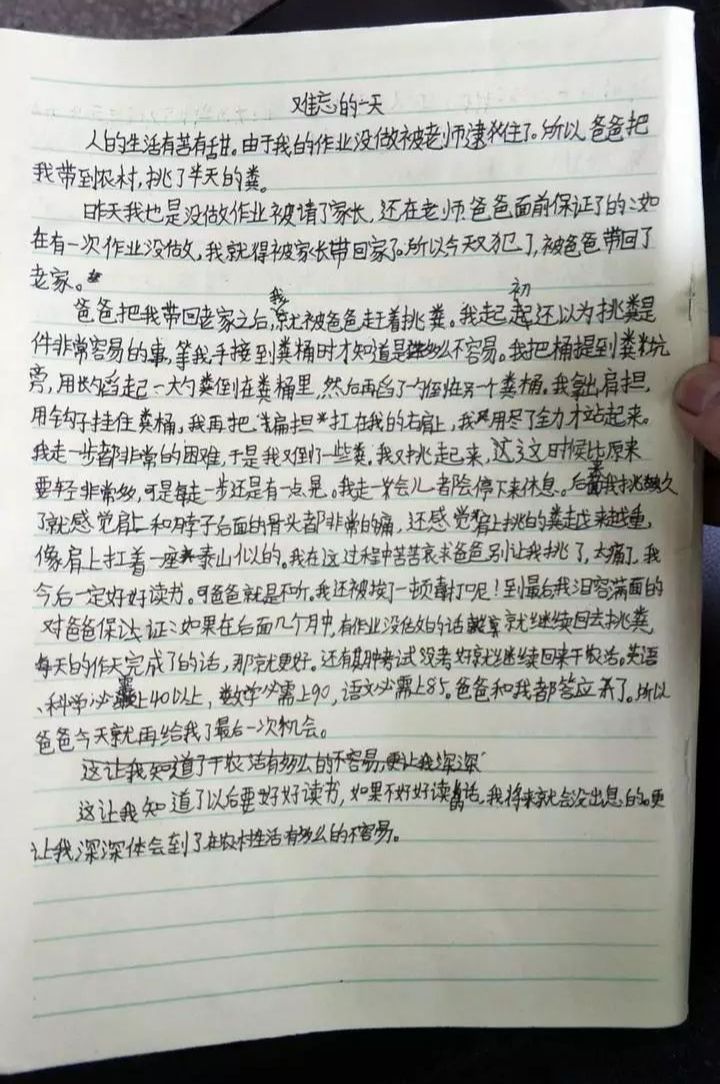 难忘的一天
人的生活有苦有甜。由于我的作业没做被老师逮住了。所以爸爸把
我带到农村，挑了半天的粪。
昨天我也是没做作业被请了家长，还在老师爸爸面前保证了的：如
在有一次作业没做，我就得被家长带回家了。所以今天又犯了，被爸爸带回了
老家。
爸爸把我带回老家之后，我就被爸爸赶着挑粪。我起初还以为挑粪是
件非常容易的事，等我手接到粪桶时才知道是多么不容易。我把桶提到粪坑
旁，用大勺舀起一大勺粪倒在粪桶里，然后再舀了一勺倒在另一个粪桶。我拿出肩担，
用钩子挂住粪桶，我再把扁担扛在我的右肩上，我用尽了全力才站起来。
我走一步都非常的困难，于是我又倒了一些粪，我又挑走起来，这时候比原来
要轻非常多，可是每走一步还是有一点晃。我走一会儿都会停下来休息。后面我挑久
了就感觉肩上和脖子后面的骨头都非常的痛，还感觉肩上挑的粪越来越重，
像肩上扛着一座泰山似的。我在这过程中苦苦哀求爸爸别让我挑了，太痛了，我
今后一定好好读书。可爸爸就是不听。我还被挨了一顿毒打呢！到最后我泪容满面的
对爸爸保证：如果在后面几个月中，有作业没做的话就继续回去挑粪，
每天的作天完成了的话，那就更好。还有期中考试没考好就继续回来干农活。英语
、科学必需上40以上，数学必需上90，语文必需上85。爸爸和我都答应了。所以
爸爸今天就再给我了最后一次机会。
这让我知道了干农活有多么的不容易，更让我深深
这让我知道了以后要好好读书，如果不好好读书的话，我将来就会没出息的。更
让我深深体会到了在农村生活有多么的不容易。